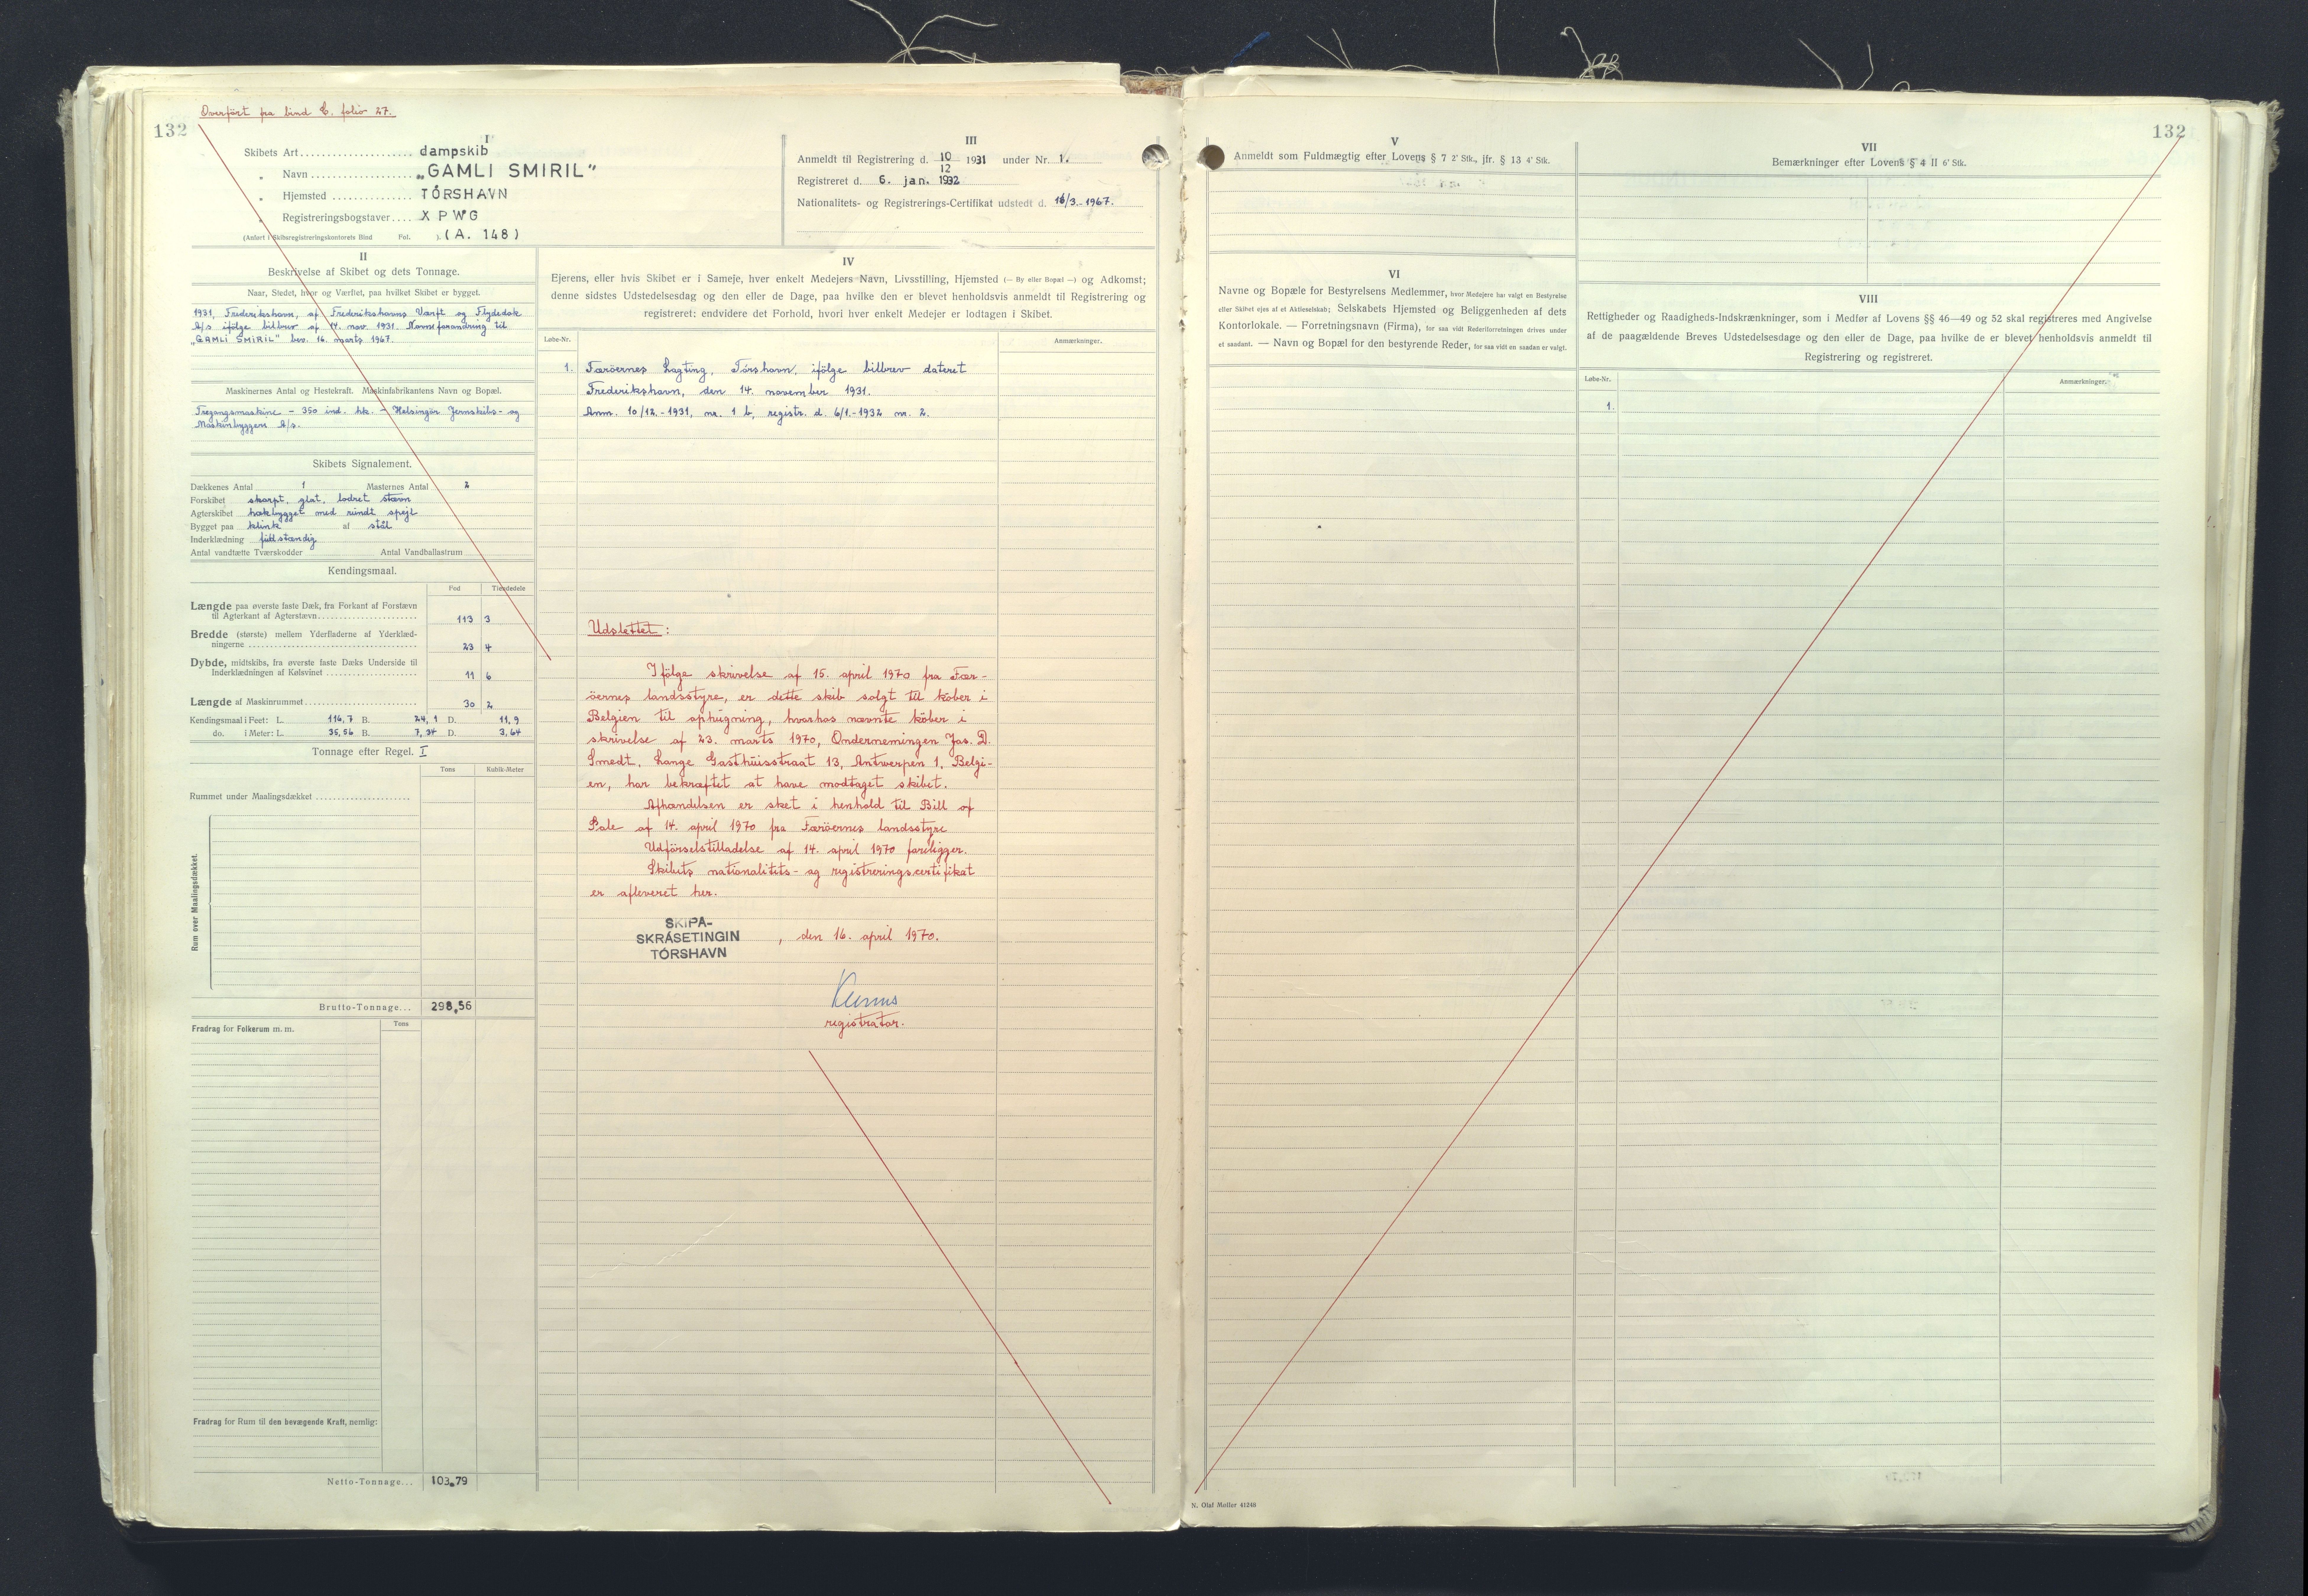 Overført fra bind C. folio 27.
132
I
Skibets Art.................... dampskib
„ Navn ................... „GAMLI SMIRIL"
„ Hjemsted ............... TÓRSHAVN
„ Registreringsbogstaver.... X P W G
(Anført i Skibsregistreringskontorets Bind Fol. ). (A. 148)
III
Anmeldt til Registrering d. 10/12 1931 under Nr. 1.
Registreret d. 6. jan. 1932
Nationalitets- og Registrerings-Certifikat udstedt d. 16/3.-1967.
II
Beskrivelse af Skibet og dets Tonnage.
Naar, Stedet, hvor og Værftet, paa hvilket Skibet er bygget.
1931, Frederikshavn, af Frederikshavns Værft og Flydedok
A/s ifølge bilbrev af 14. nov. 1931. Navneforandring til
„GAMLI SMIRIL" bev. 16. marts 1967.
Maskinernes Antal og Hestekraft. Maskinfabrikantens Navn og Bopæl.
Tregangsmaskine - 350 ind. hk. - Helsingör Jernskibs- og
Maskinbyggeri A/s.
Skibets Signalement.
Dækkenes Antal 1 Masternes Antal 2
Forskibet skarpt, glat, lodret stævn
Agterskibet hækbygget med rundt spejl
Bygget paa klink af stål
Inderklædning fuldstændig
Antal vandtætte Tværskodder Antal Vandballastrum
Kendingsmaal.
Fod Tiendedele
Længde paa øverste faste Dæk, fra Forkant af Forstævn
til Agterkant af Agterstævn........................ 113 3
Bredde (største) mellem Yderfladerne af Yderklæd-
ningerne ........................................ 23 4
Dybde, midtskibs, fra øverste faste Dæks Underside til
Inderklædningen af Kølsvinet ...................... 11 6
Længde af Maskinrummet......................... 30 2
Kendingsmaal i Feet: L. 116,7 B. 24,1 D. 11,9
do. i Meter: L. 35,56 B. 7,34 D. 3,64
Tonnage efter Regel. I
Tons Kubik-Meter
Rummet under Maalingsdækket .......................
Rum over Maalingsdækket.
Brutto-Tonnage... 298,56
Fradrag for Folkerum m. m. Tons
Fradrag for Rum til den bevægende Kraft, nemlig:
Netto-Tonnage... 103,79
IV
Ejerens, eller hvis Skibet er i Sameje, hver enkelt Medejers Navn, Livsstilling, Hjemsted (— By eller Bopæl —) og Adkomst;
denne sidstes Udstedelsesdag og den eller de Dage, paa hvilke den er blevet henholdsvis anmeldt til Registrering og
registreret: endvidere det Forhold, hvori hver enkelt Medejer er lodtagen i Skibet.
Løbe-Nr. Anmærkninger.
1. Færöernes Lagting, Tórshavn, ifölge bilbrev dateret
Frederikshavn, den 14. november 1931.
Anm. 10/12.-1931, nr. 1 b, registr. d. 6/1.-1932 nr. 2.
Udslettet:
Ifölge skrivelse af 15. april 1970 fra Fær-
öernes landsstyre, er dette skib solgt til köber i
Belgien til ophugning, hvorhos nævnte köber i
skrivelse af 23. marts 1970, Ondernemingen Jos. D.
Smedt, Lange Gasthuisstraat 13, Antwerpen 1, Belgi-
en, har bekræftet at have modtaget skibet.
Afhændelsen er sket i henhold til Bill of
Sale af 14. april 1970 fra Færöernes landsstyre
Udförselstilladelse af 14. april 1970 foreligger.
Skibets nationalitets- og registreringscertifikat
er afleveret her.
SKIPA-
SKRÁSETINGIN
TÓRSHAVN
, den 16. april 1970.
registrator.
132
V
Anmeldt som Fuldmægtig efter Lovens § 7 2' Stk., jfr. § 13 4' Stk.
VI
Navne og Bopæle for Bestyrelsens Medlemmer, hvor Medejere har valgt en Bestyrelse
eller Skibet ejes af et Aktieselskab; Selskabets Hjemsted og Beliggenheden af dets
Kontorlokale. — Forretningsnavn (Firma), for saa vidt Rederiforretningen drives under
et saadant. — Navn og Bopæl for den bestyrende Reder, for saa vidt en saadan er valgt.
VII
Bemærkninger efter Lovens § 4 II 6' Stk.
VIII
Rettigheder og Raadigheds-Indskrænkninger, som i Medfør af Lovens §§ 46—49 og 52 skal registreres med Angivelse
af de paagældende Breves Udstedelsesdage og den eller de Dage, paa hvilke de er blevet henholdsvis anmeldt til
Registrering og registreret.
Løbe-Nr. Anmærkninger.
1.
N. Olaf Møller 41248